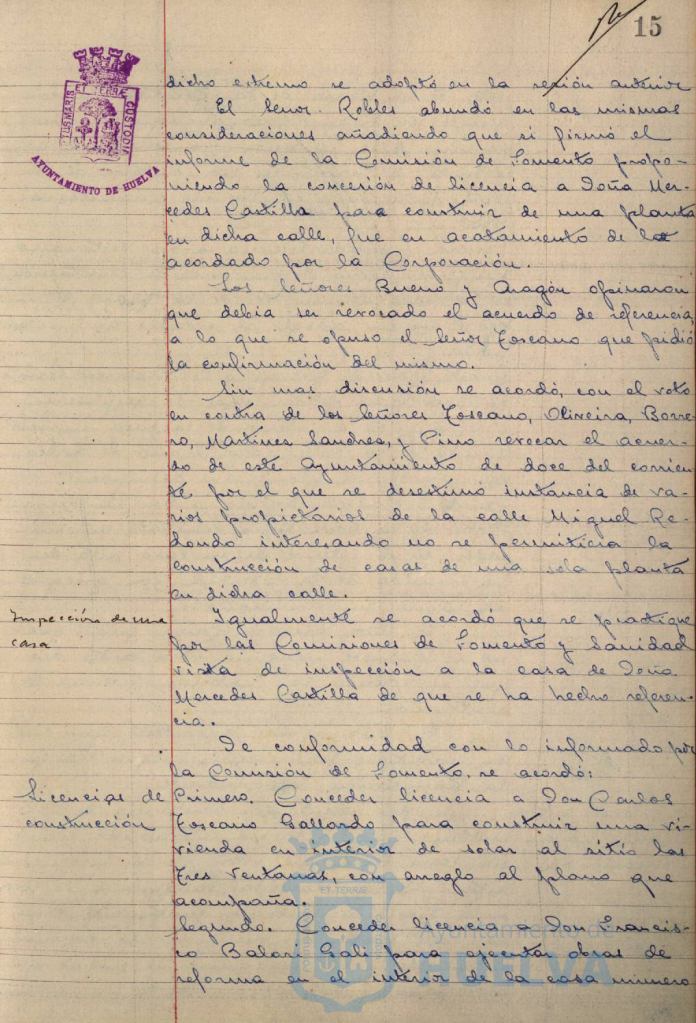 15
ET TERRE
PORTUS MARIS
CUSTODIA
AYUNTAMIENTO DE HUELVA
dicho estremo se adoptó en la sesión anterior
El Señor Robles abundó en las mismas
consideraciones añadiendo que si firmó el
informe de la Comisión de Fomento propo-
niendo la concesión de licencia a Doña Mer-
cedes Castilla para construir de una planta
en dicha calle, fue en acatamiento de lo
acordado por la Corporación.
Los Señores Bueno y Aragón opinaron
que debia ser revocado el acuerdo de referencia,
a lo que se opuso el Señor Toscano que pidió
la confirmación del mismo.
Sin mas discusión se acordó, con el voto
en contra de los Señores Toscano, Oliveira, Borre-
ro, Martinez Sandrea, y Pino revocar el acuer-
do de este Ayuntamiento de doce del corrien-
te por el que se desestimó instancia de va-
rios propietarios de la calle Miguel Re-
dondo interesando no se permitiria la
construcción de casas de una sola planta
en dicha calle.
Inspección de una
casa
Igualmente se acordó que se practique
por las Comisiones de Fomento y Sanidad
visita de inspección a la casa de Doña
Mercedes Castilla de que se ha hecho referen-
cia.
De conformidad con lo informado por
la Comisión de Fomento, se acordó:
Licencias de
construcción
Primero. Conceder licencia a Don Carlos
Toscano Gallardo para construir una vi-
vienda en interior de solar al sitio las
Tres Ventanas, con arreglo al plano que
acompaña.
Segundo. Conceder licencia a Don Francis-
co Balari Gali para ejecutar obras de
reforma en el interior de la casa número
ET TERRÆ
Ayuntamiento de
HUELVA